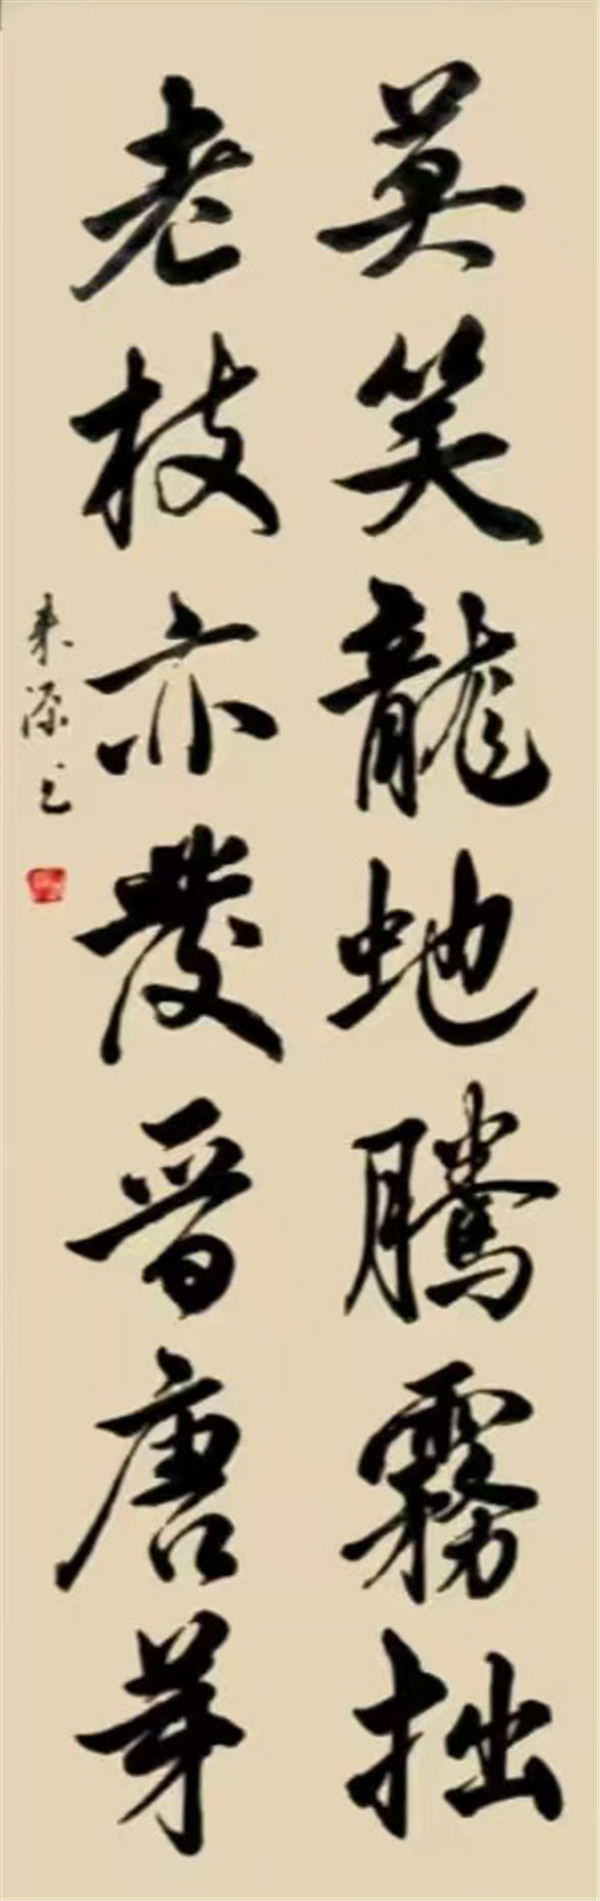 莫笑龍地騰霧拙
老枝亦發晉唐芽